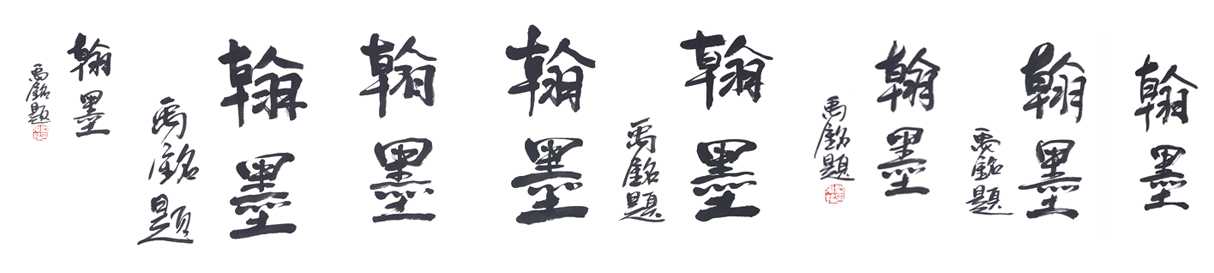 翰墨
禹銘題
翰墨
禹銘題
翰墨
翰墨
翰墨
禹銘題
翰墨
禹銘題
翰墨
禹銘題
翰墨